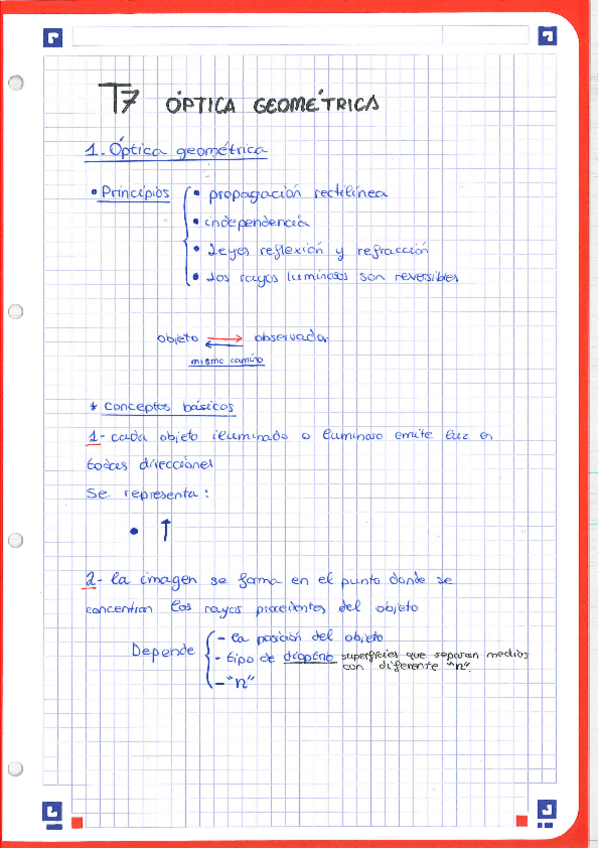 T7 ÓPTICA GEOMÉTRICA
1. Óptica geométrica
• Principios
• propagación rectilínea
• independencia
• Leyes reflexión y refracción
• Los rayos luminosos son reversibles
objeto observador
mismo camino
* conceptos básicos
1- cada objeto iluminado o luminoso emite luz en
todas direcciones
Se representa:
• ↑
2- la imagen se forma en el punto donde se
concentran los rayos procedentes del objeto
Depende
- la posición del objeto
- tipo de dioptrio superficies que separan medios
con diferente "n".
- "n"